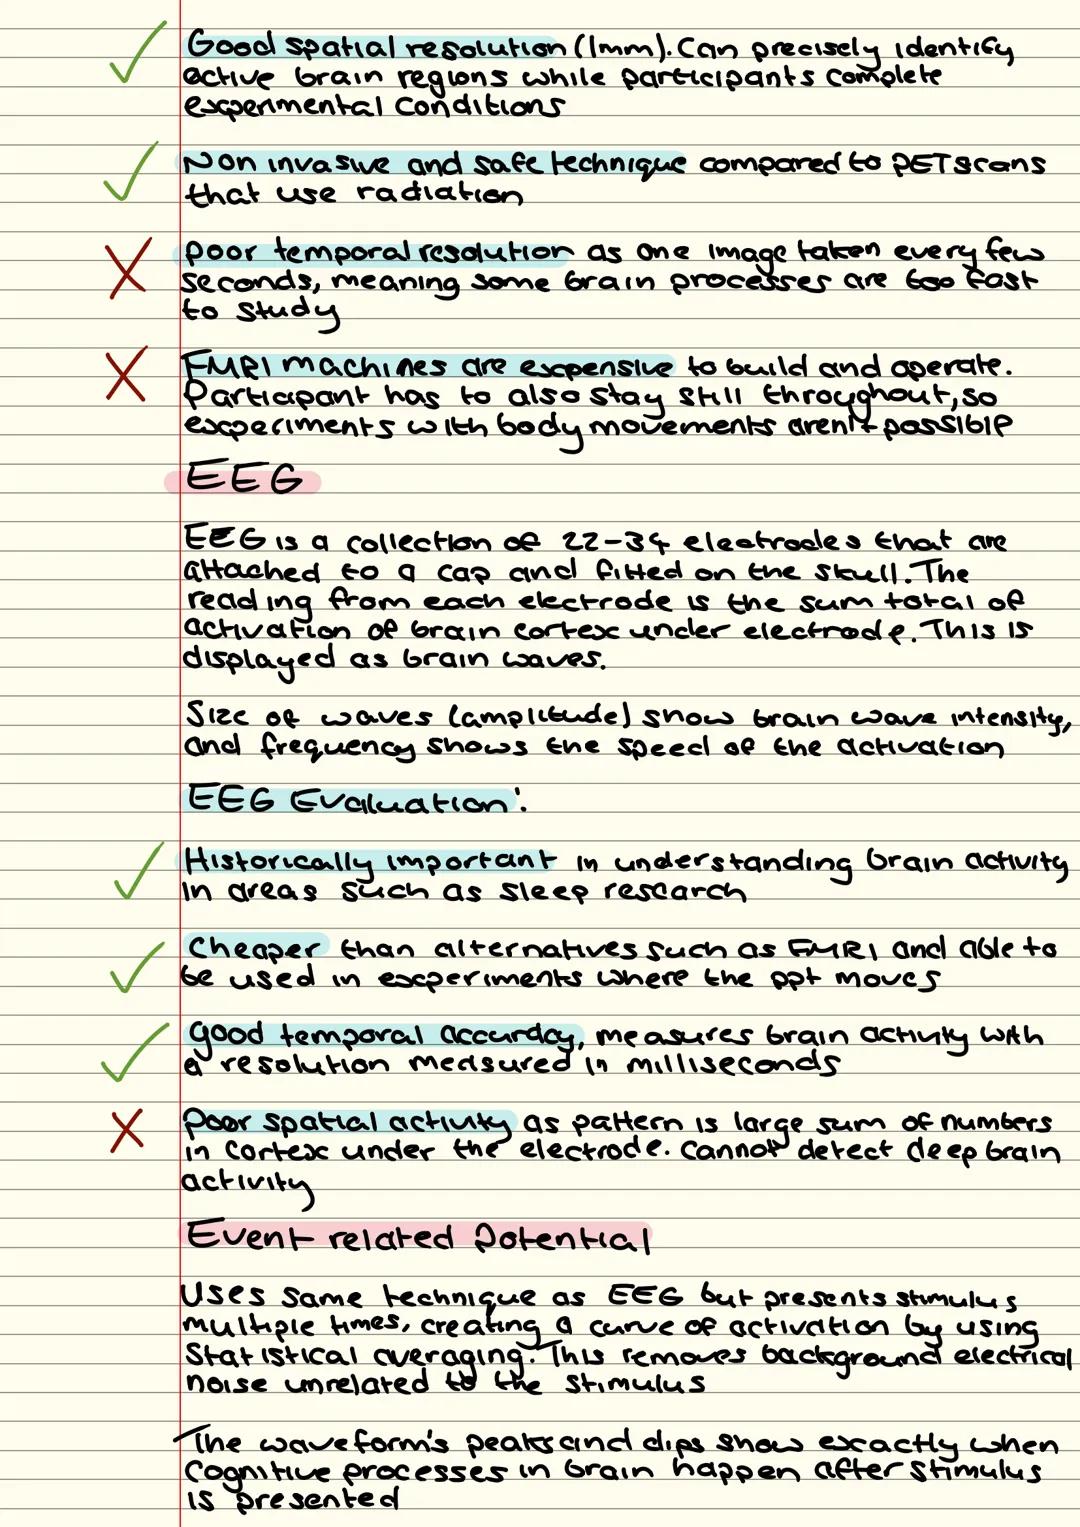 Good spatial resolution (1mm). Can precisely identify
active brain regions while participants complete
experimental conditions
Non invasive and safe technique compared to PET scans
that use radiation
poor temporal resolution as one image taken every few
seconds, meaning some brain processes are too fast
to study
FMRI machines are expensive to build and operate.
Participant has to also stay still throughout, so
experiments with body movements aren't possible
EEG
EEG is a collection of 22-34 electrodes that are
attached to a cap and fitted on the skull. The
reading from each electrode is the sum total of
activation of brain cortex under electrode. This is
displayed as brain waves.
Size of waves (amplitude) show brain wave intensity,
and frequency shows the speed of the activation
EEG Evaluation:
Historically important in understanding brain activity
in areas such as sleep research
Cheaper than alternatives such as FMRI and able to
be used in experiments where the ppt moves
good temporal accuracy, measures brain activity with
a resolution measured in milliseconds
Poor spatial activity as pattern is large sum of numbers
in cortex under the electrode. Cannot detect deep brain
activity
Event related Potential
Uses same technique as EEG but presents stimulus
multiple times, creating a curve of activation by using
statistical averaging. This removes background electrical
noise unrelated to the stimulus
The waveform's peaks and dips show exactly when
cognitive processes in brain happen after stimulus
is presented